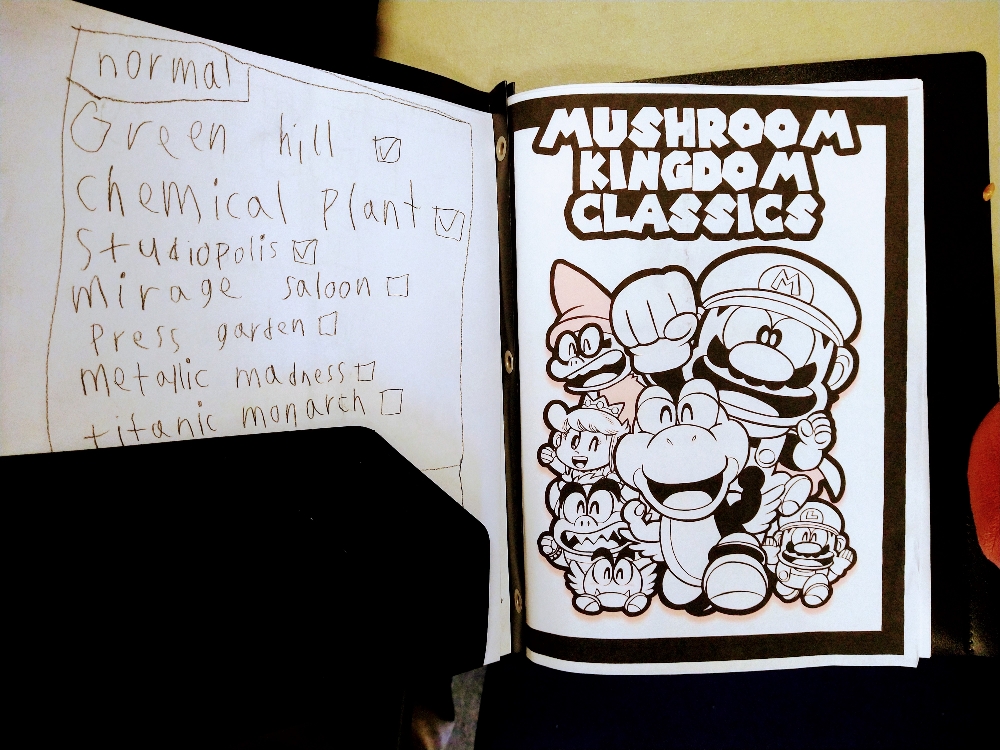 normal
Green hill
chemical plant
studiopolis
mirage saloon
Press garden
metallic madness
titanic monarch
MUSHROOM
KINGDOM
CLASSICS
M
L